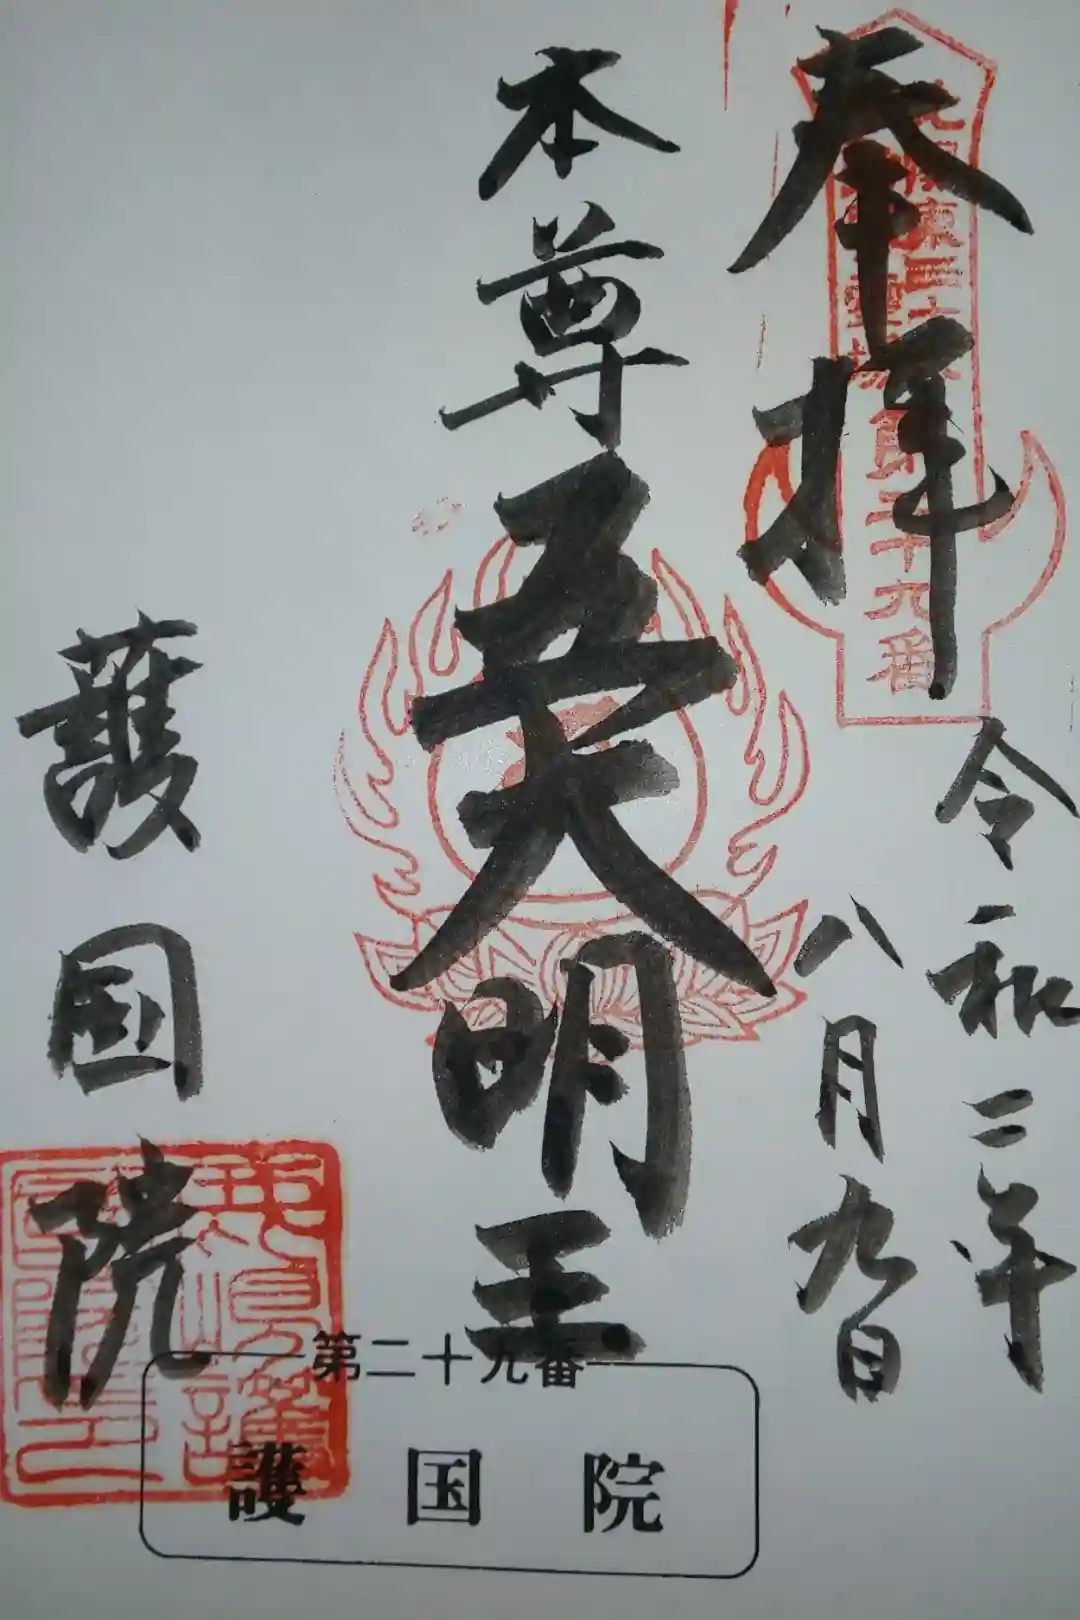 奉拝
令和二年
八月九日
本尊五大明王
護国院
第二十九番
第二十九番
護国院